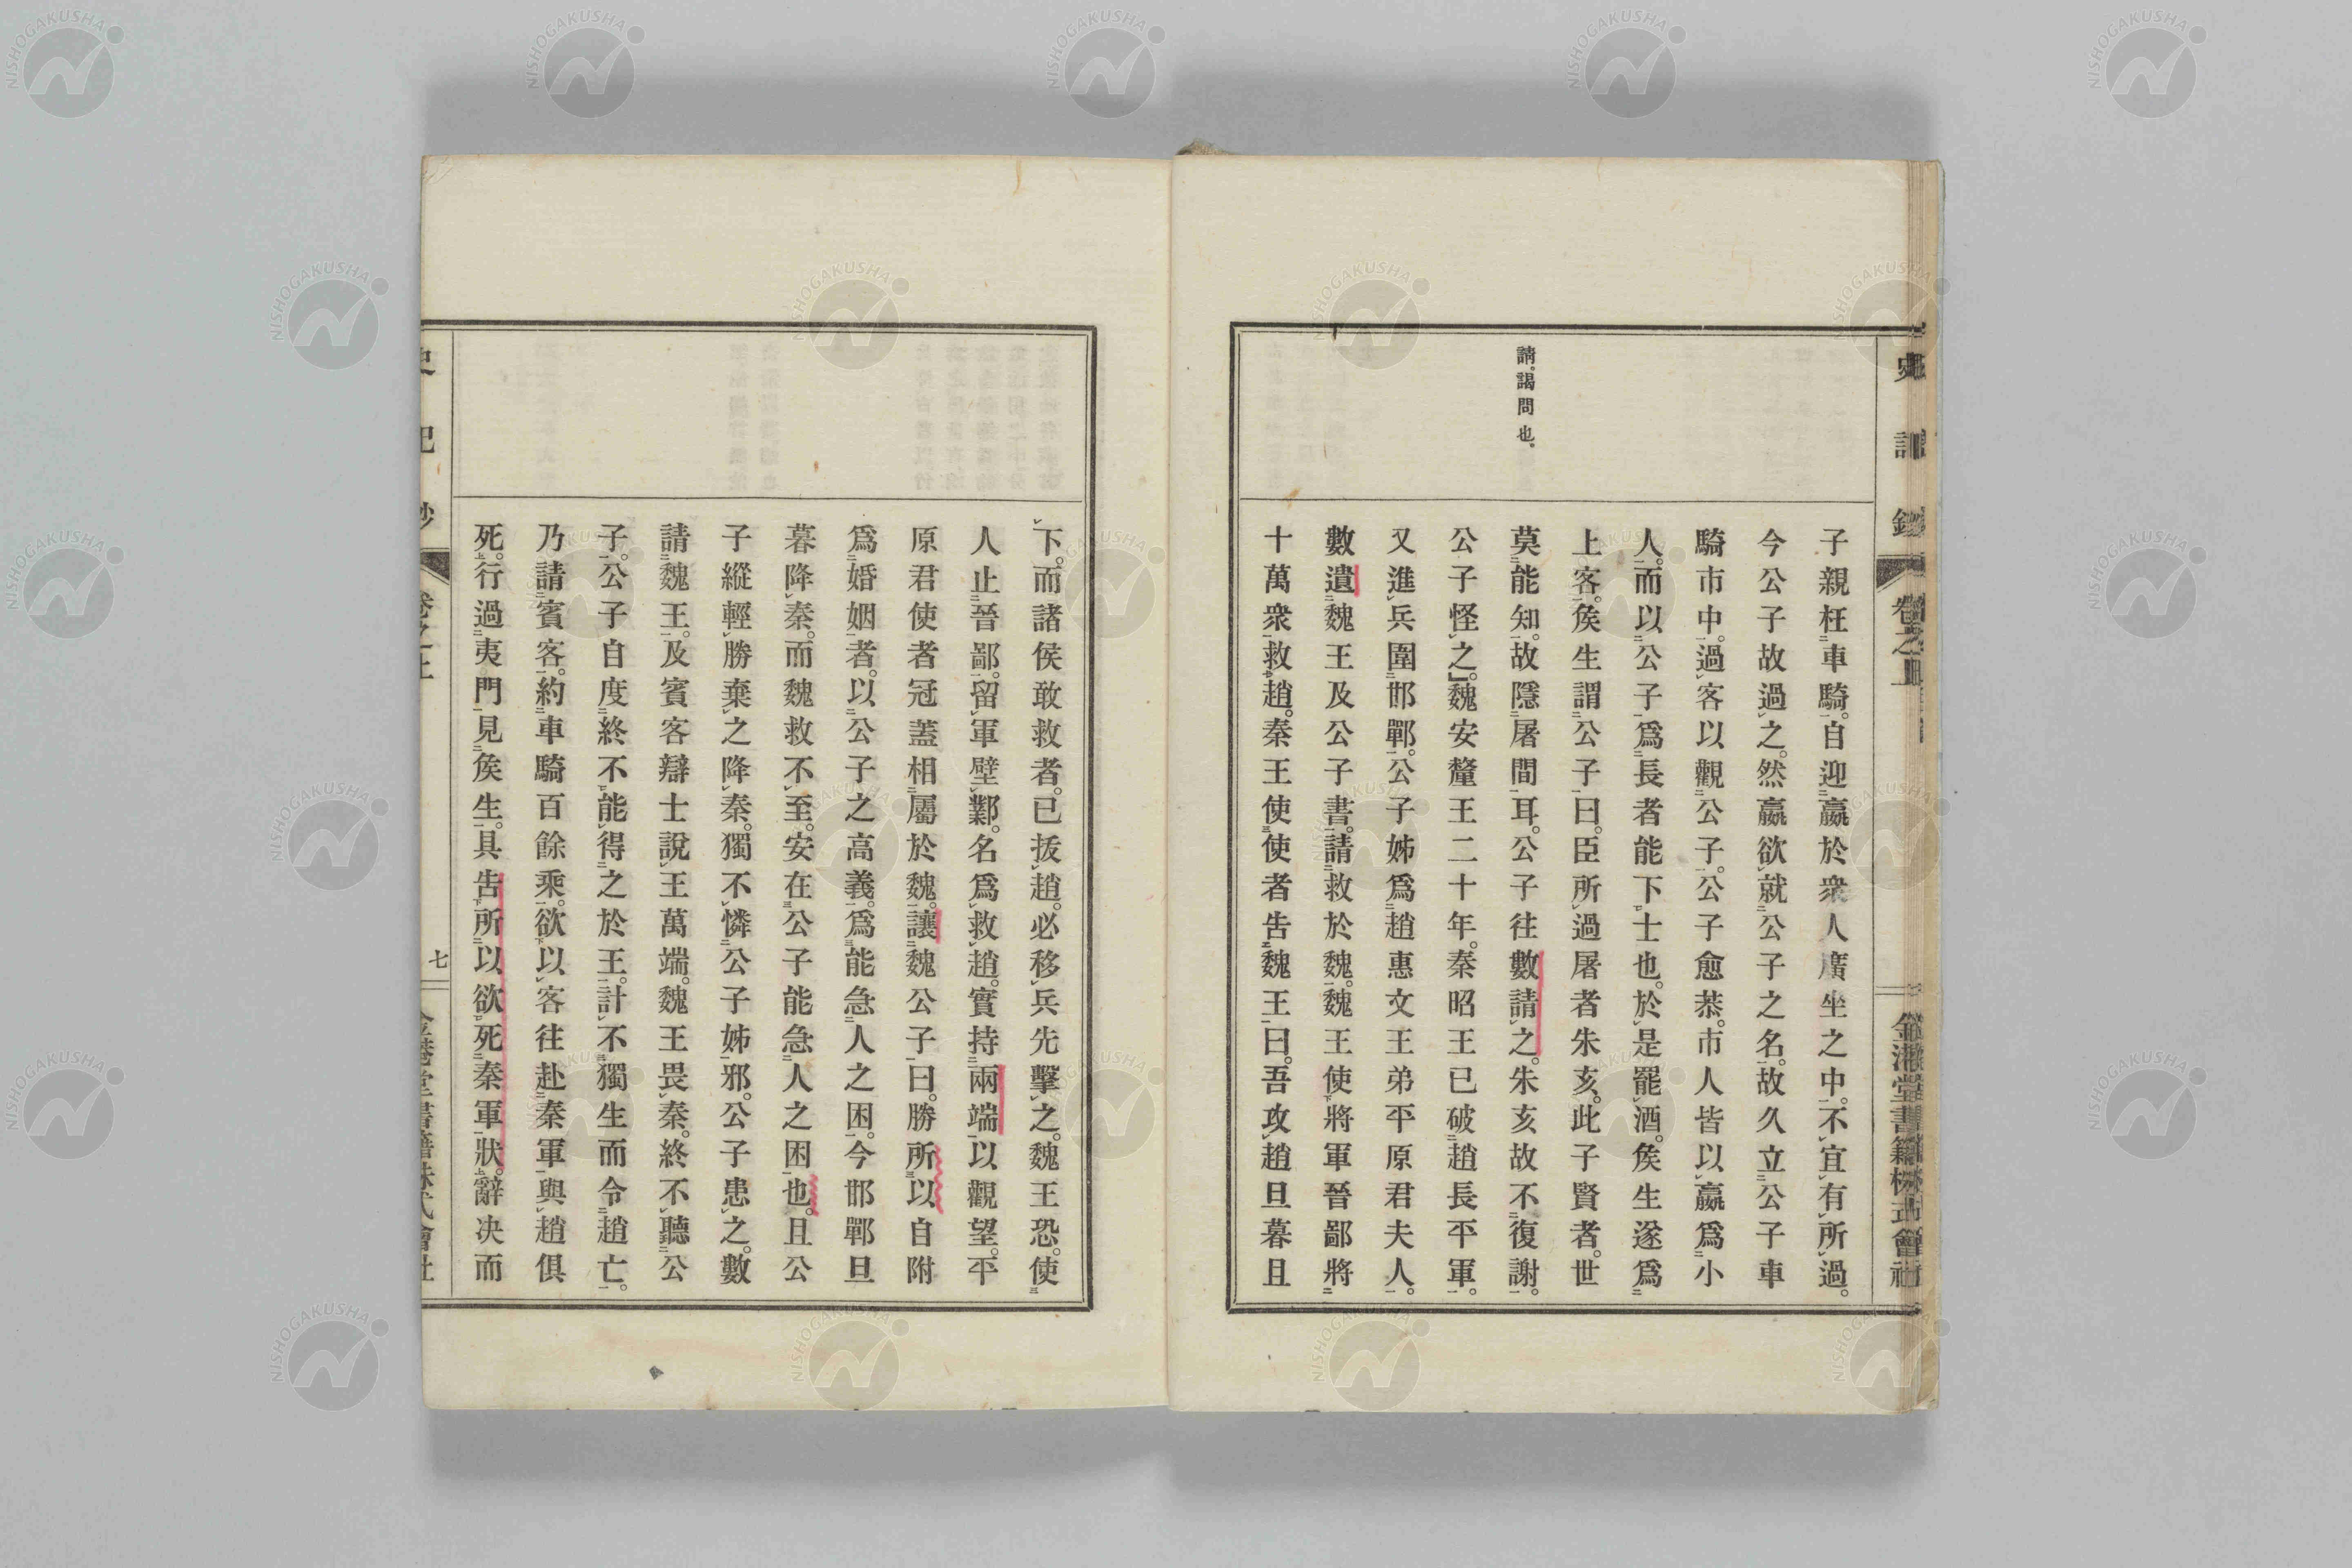 史記鈔 卷之上 金港堂書籍株式會社
請。謁問也。
子親枉車騎。自迎嬴於衆人廣坐之中。不宜有所過。
今公子故過之。然嬴欲就公子之名。故久立公子車
騎市中。過客以觀公子。公子愈恭。市人皆以嬴爲小
人。而以公子爲長者能下士也。於是罷酒。矦生遂爲
上客。矦生謂公子曰。臣所過屠者朱亥。此子賢者。世
莫能知。故隱屠間耳。公子往數請之。朱亥故不復謝。
公子怪之。」魏安釐王二十年。秦昭王已破趙長平軍。
又進兵圍邯鄲。公子姊爲趙惠文王弟平原君夫人。
數遺魏王及公子書。請救於魏。魏王使將軍晉鄙將
十萬衆救趙。秦王使使者告魏王曰。吾攻趙旦暮且
下。而諸侯敢救者。已拔趙。必移兵先擊之。魏王恐。使
人止晉鄙。留軍壁鄴。名爲救趙。實持兩端以觀望。平
原君使者冠蓋相屬於魏。讓魏公子曰。勝所以自附
爲婚姻者。以公子之高義。爲能急人之困。今邯鄲旦
暮降秦。而魏救不至。安在公子能急人之困也。且公
子縱輕勝棄之降秦。獨不憐公子姊邪。公子患之。數
請魏王。及賓客辯士說王萬端。魏王畏秦。終不聽公
子。公子自度終不能得之於王。計不獨生而令趙亡。
乃請賓客。約車騎百餘乘。欲以客往赴秦軍與趙俱
死。行過夷門見矦生。具告所以欲死秦軍狀。辭决而
史記鈔 卷之上 七 金港堂書籍株式會社